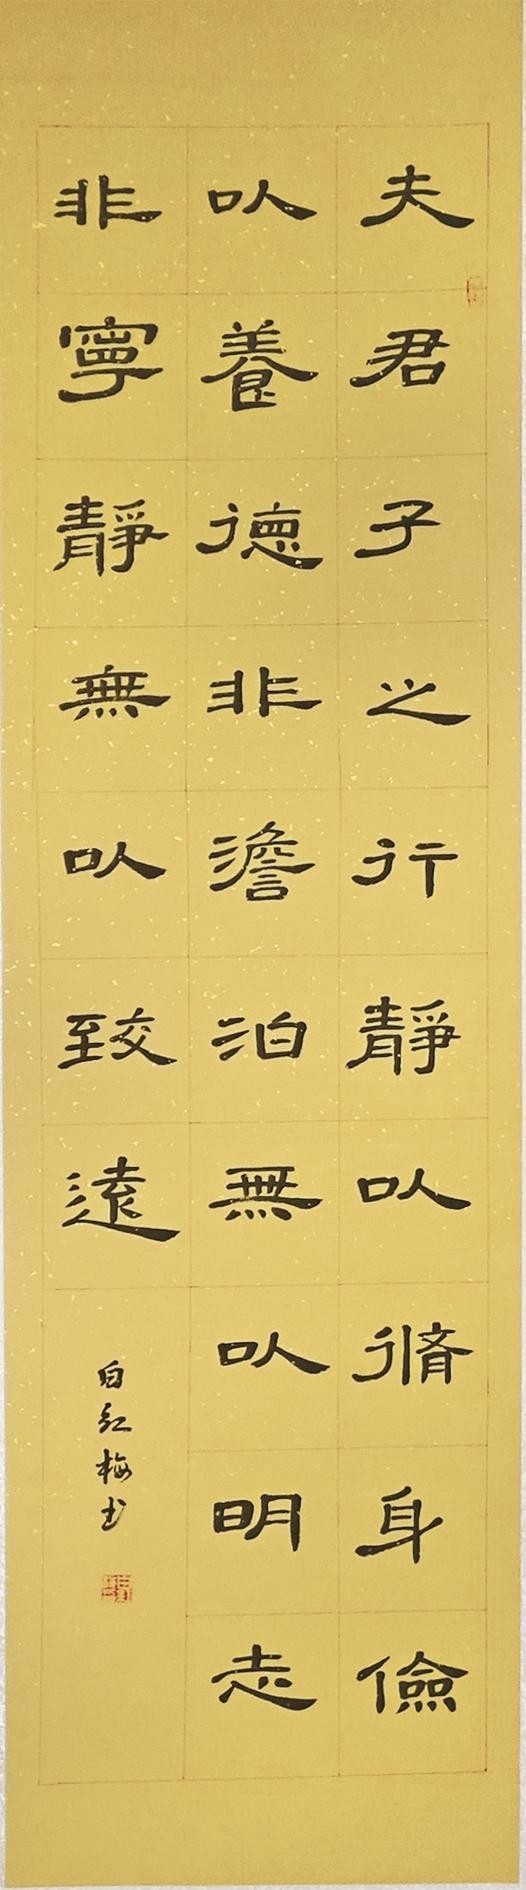 夫君子之行靜以脩身儉
以養德非澹泊無以明志
非寧靜無以致遠
白紅梅书